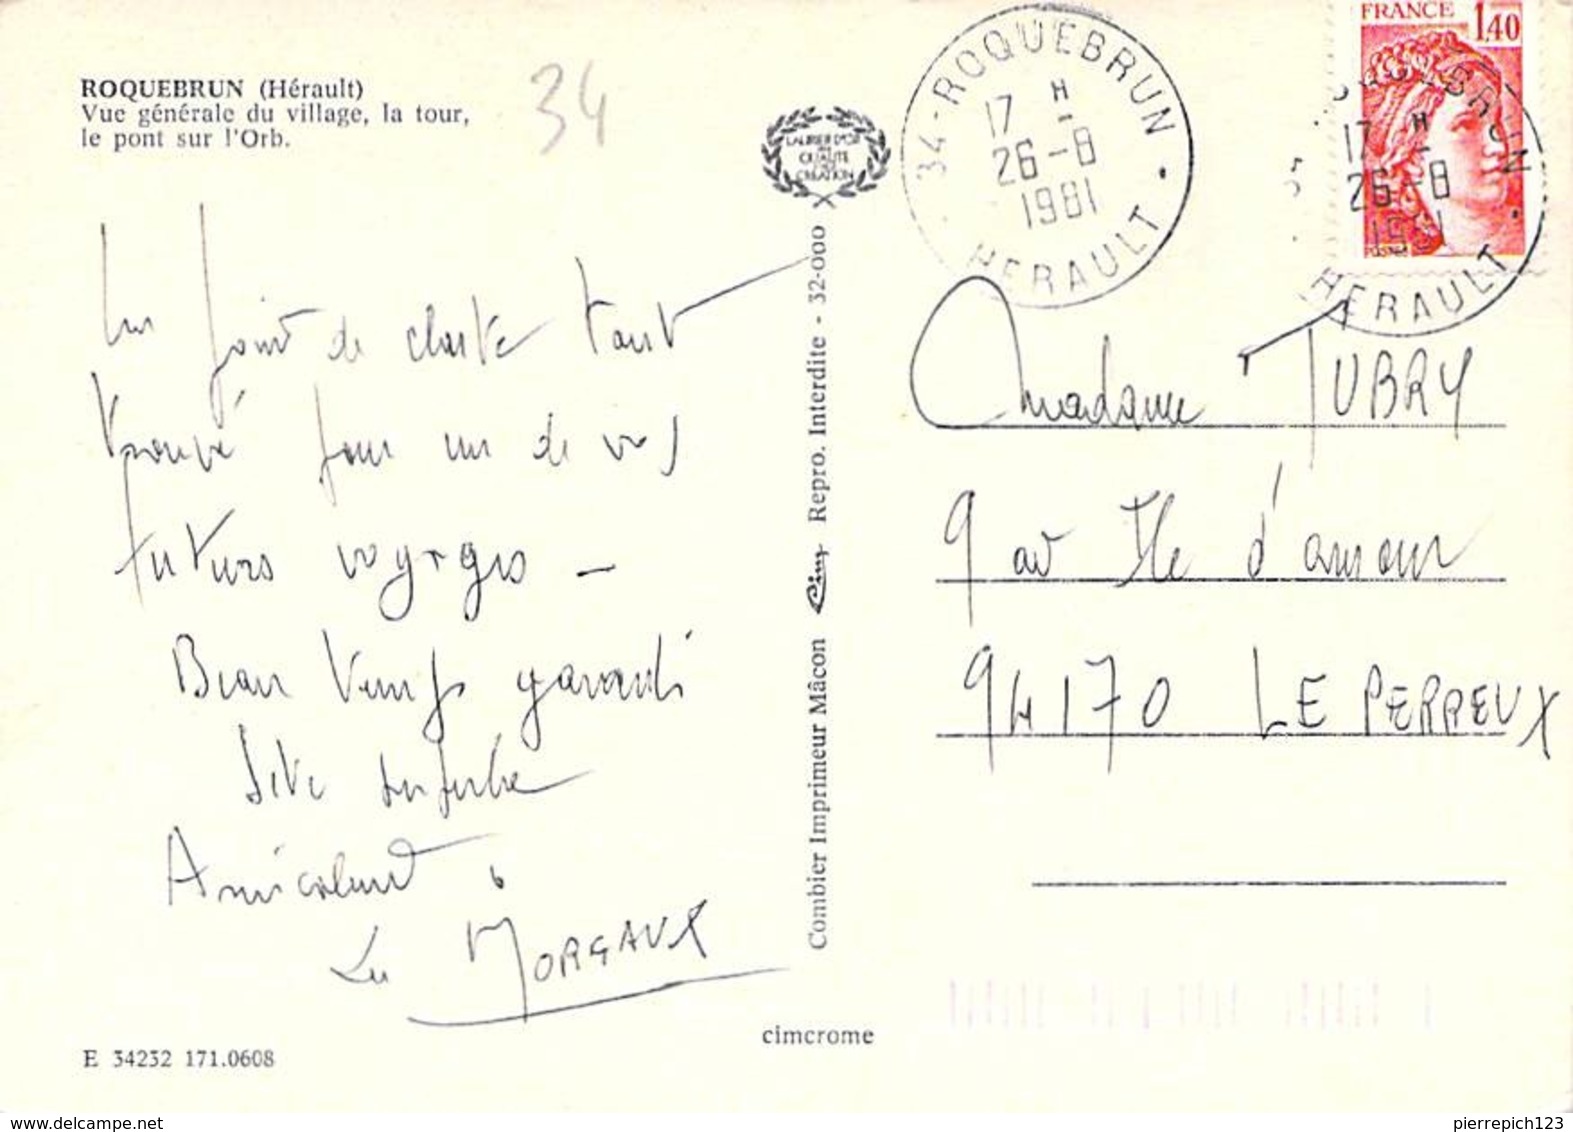 ROQUEBRUN (Hérault)
Vue générale du village, la tour,
le pont sur l'Orb.
34
LAURIER D'OR
QUALITE
CREATION
Un point de chute tout
trouvé pour un de vos
futurs voyages -
Beau temps garanti
site superbe
Amicalement
Les MORGAUX
E 34232 171.0608
Combier Imprimeur Mâcon Cim Repro. Interdite - 32-000
cimcrome
34-ROQUEBRUN
17 H
26-8
1981
HERAULT
FRANCE 1,40
ROQUEBRUN
17 H
26-8
1981
HERAULT
Madame TUBRY
9 av Ile d'amour
94170 LE PERREUX
pierrepich123